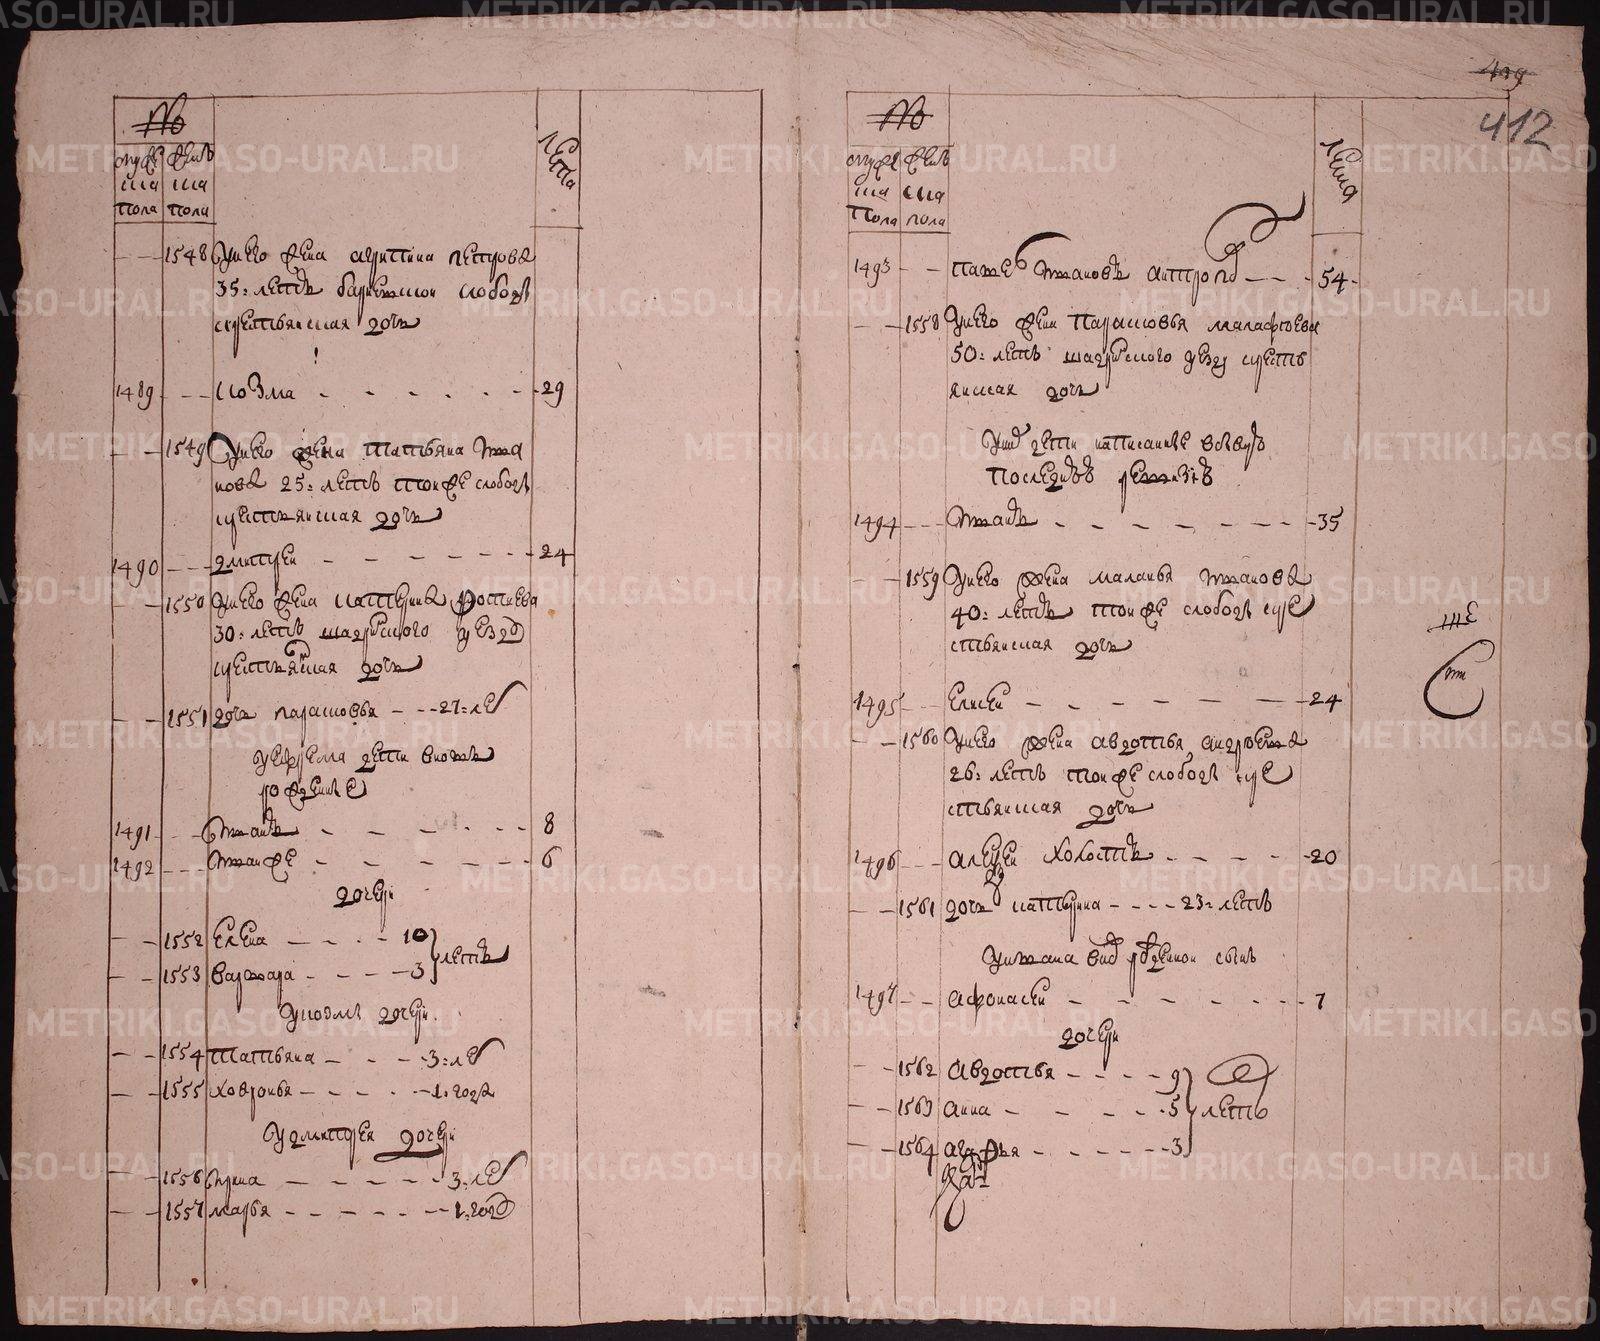 439
412
№
мужеска пола
женска пола
лета
1548 У него жена акулина петрова
35: летъ багаряцкой слободы
крестьянская дочь
1489 козма 29
1549 У него жена татьяна ива
нова 25: летъ той же слободы
крестьянская дочь
1490 дмитрей 24
1550 У него жена катерина
30: летъ шадринского уезда
крестьянская дочь
1551 дочь парасковья 27: ле
дети вновь
рожденные
1491 иванъ 8
1492 иван же 6
дочери
1552 елена 10
летъ
1553 варвара 3
У козмы дочери
1554 татьяна 3: ле
1555 ховронья 1: года
У дмитрея дочери
1556 ирина 3: ле
1557 марья 1: году
№
мужеска пола
женска пола
лета
1493 ивановъ антропъ 54
1558 У него жена парасковья малафеева
50: летъ шадринского уезду кресть
янская дочь
У них дети написанные
последней ревизие
1494 иванъ 35
1559 У него жена маланья иванова
40: летъ той же слободы кре
стьянская дочь
1495 елисей 24
1560 У него жена авдотья андреева
26: летъ той же слободы кре
стьянская дочь
1496 алексей холостъ 20
1561 дочь катерина 23: летъ
У ивана вновь рожденной сынъ
1497 афонасей 7
дочери
1562 авдотья 9
1563 анна 5 летъ
1564 агафья 3